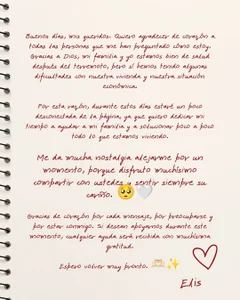 Buenos días, mis queridos. Quiero agradecer de corazón a
todas las personas que me han preguntado cómo estoy.
Gracias a Dios, mi familia y yo estamos bien de salud
después del terremoto, pero sí hemos tenido algunas
dificultades con nuestra vivienda y nuestra situación
económica.
Por esta razón, durante estos días estaré un poco
desconectada de la página, ya que quiero dedicar mi
tiempo a ayudar a mi familia y a solucionar poco a poco
todo lo que estamos viviendo.
Me da mucha nostalgia alejarme por un
momento, porque disfruto muchísimo
compartir con ustedes y sentir siempre su
cariño. 🥺🤍
Gracias de corazón por cada mensaje, por preocuparse y
por estar conmigo. Si desean apoyarnos durante este
momento, cualquier ayuda será recibida con muchísima
gratitud.
Espero volver muy pronto. 🫶🏻✨
Edis